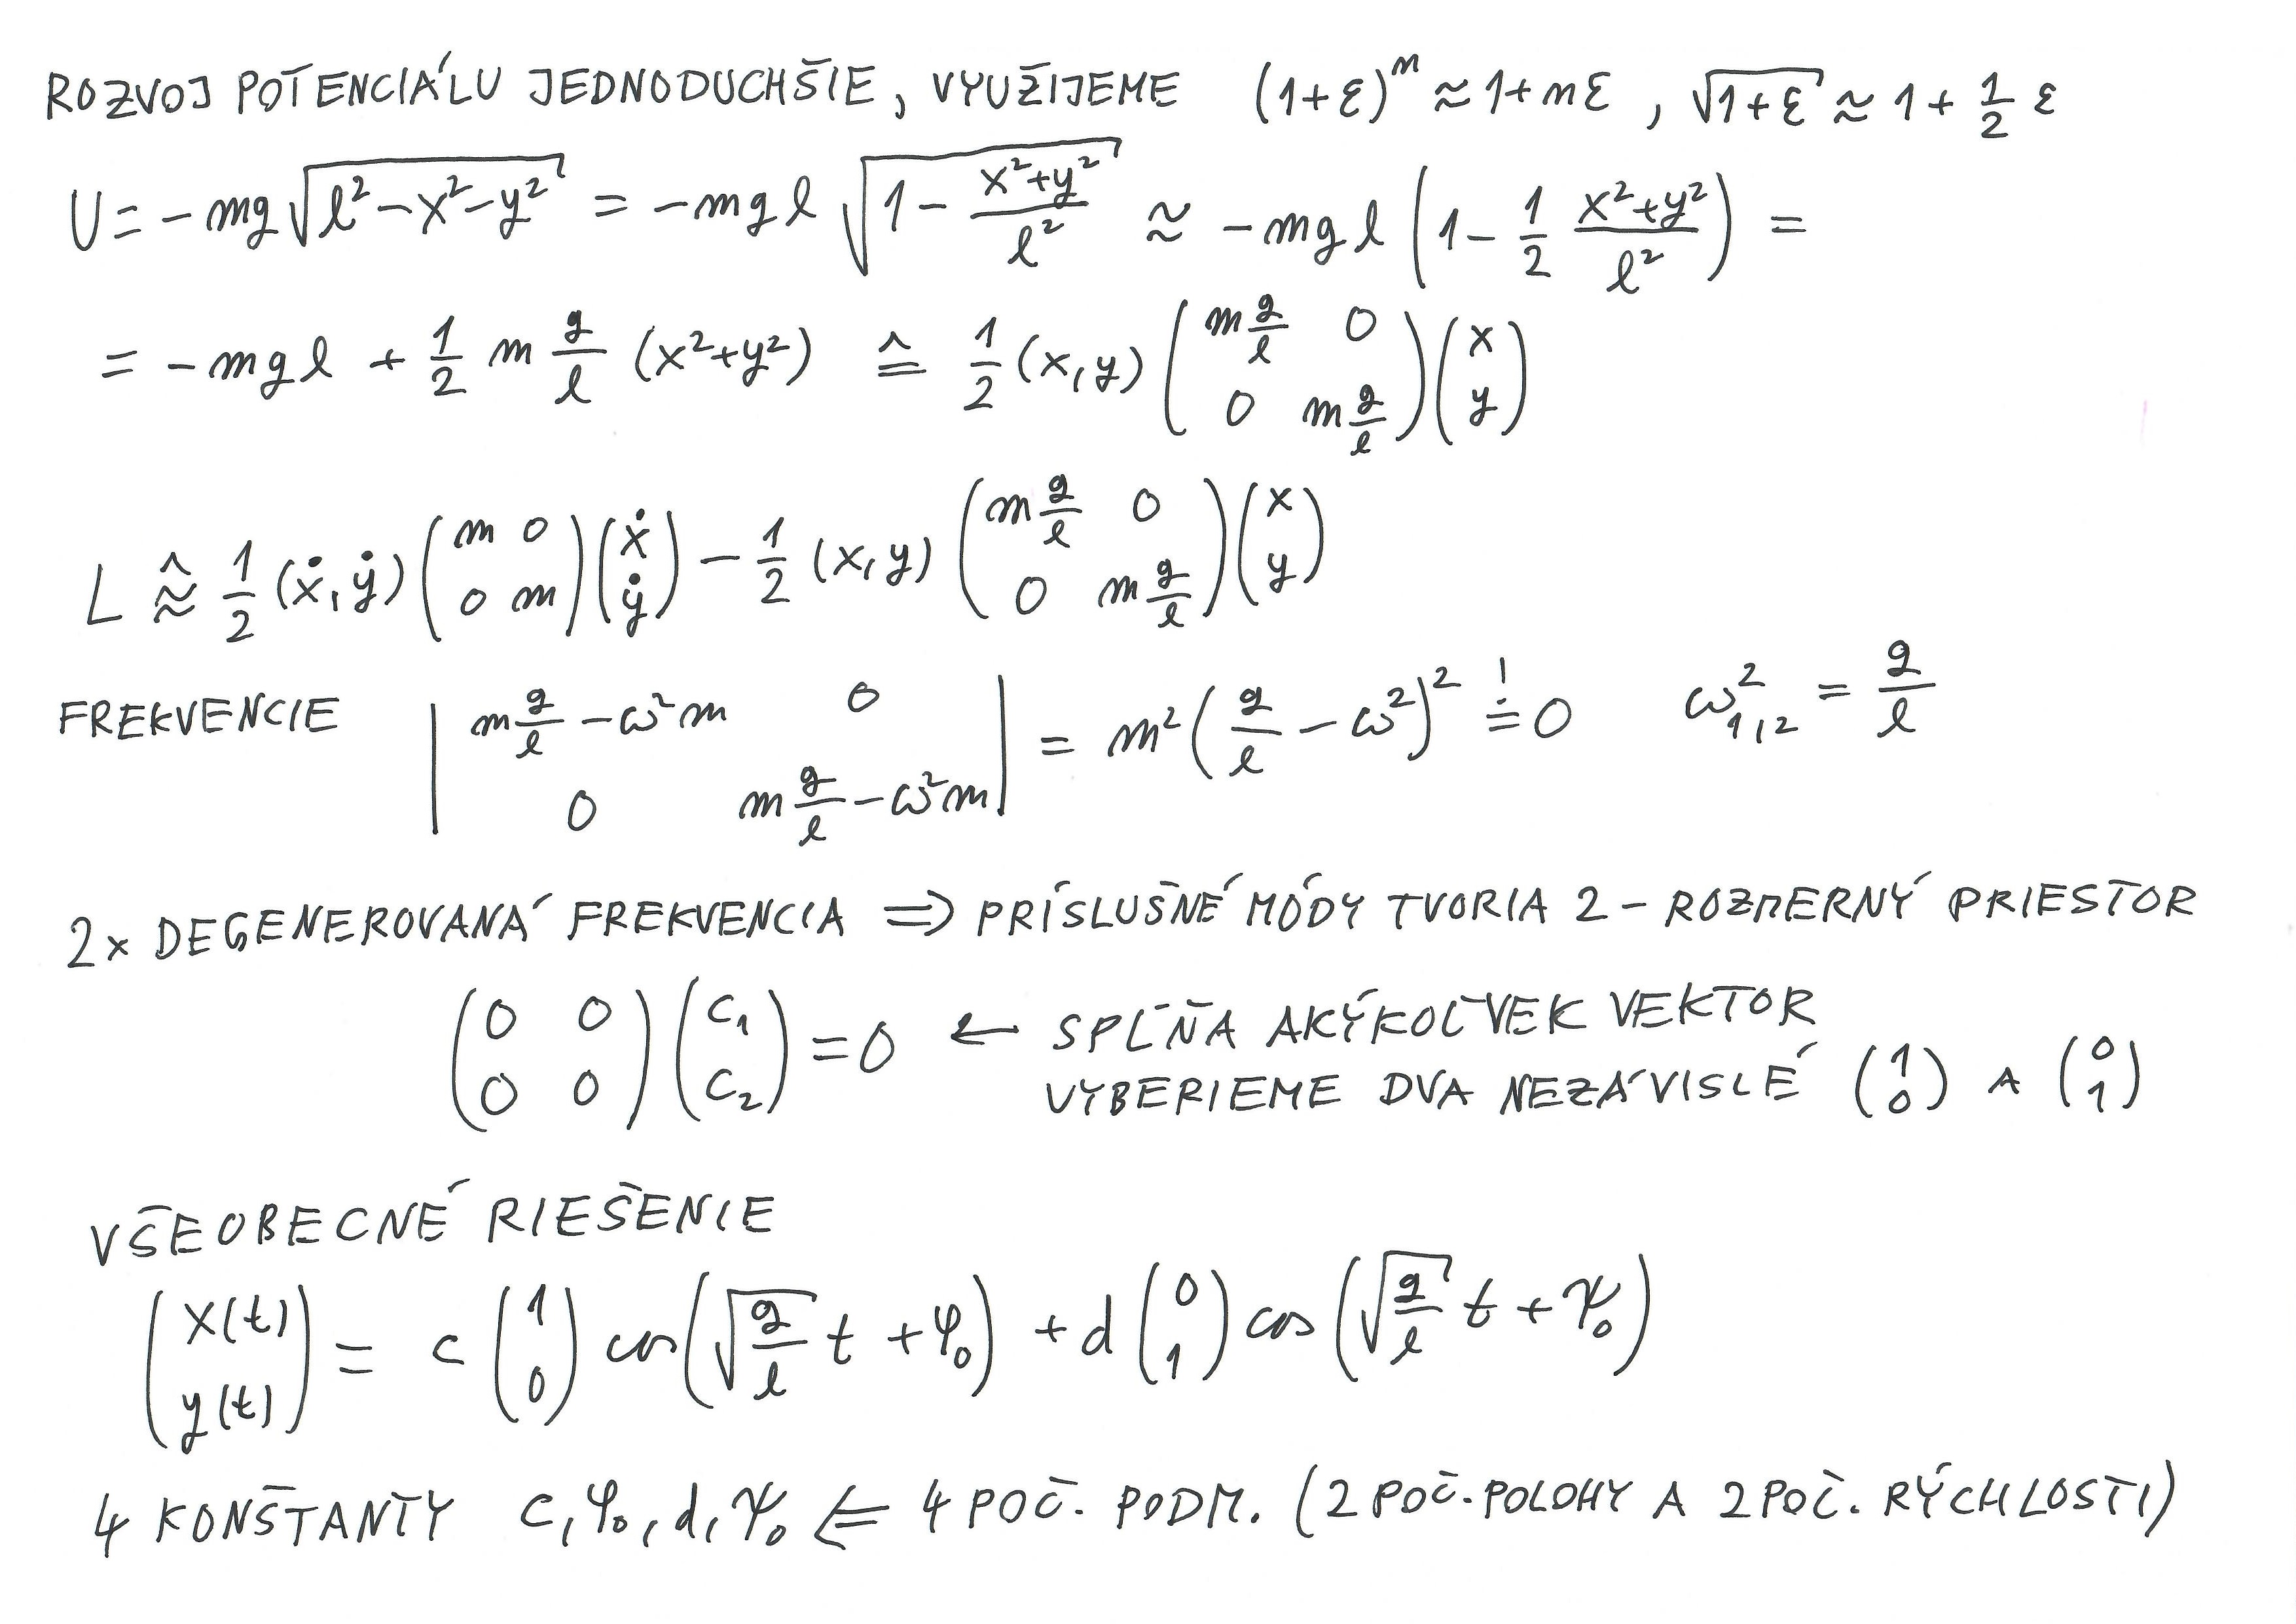 ROZVOJ POTENCIÁLU JEDNODUCHŠIE, VYUŽIJEME (1+ε)^n ≈ 1+nε , √(1+ε) ≈ 1 + 1/2 ε
U = -mg √(l²-x²-y²) = -mgl √(1 - (x²+y²)/l²) ≈ -mgl (1 - 1/2 (x²+y²)/l²) =
= -mgl + 1/2 m g/l (x²+y²) ≙ 1/2 (x,y) (m g/l 0 ; 0 m g/l) (x ; y)
L ≈̂ 1/2 (ẋ,ẏ) (m 0 ; 0 m) (ẋ ; ẏ) - 1/2 (x,y) (m g/l 0 ; 0 m g/l) (x ; y)
FREKVENCIE | m g/l - ω²m 0 ; 0 m g/l - ω²m | = m² (g/l - ω²)² =! 0 ω²₁,₂ = g/l
2x DEGENEROVANÁ FREKVENCIA ⇒ PRÍSLUŠNÉ MÓDY TVORIA 2-ROZMERNÝ PRIESTOR
(0 0 ; 0 0) (c₁ ; c₂) = 0 ← SPĹŇA AKÝKOĽVEK VEKTOR
VYBERIEME DVA NEZÁVISLÉ (1 ; 0) A (0 ; 1)
VŠEOBECNÉ RIEŠENIE
(x(t) ; y(t)) = c (1 ; 0) cos(√(g/l) t + φ₀) + d (0 ; 1) cos(√(g/l) t + ψ₀)
4 KONŠTANTY c, φ₀, d, ψ₀ ⇐ 4 POČ. PODM. (2 POČ. POLOHY A 2 POČ. RÝCHLOSTI)